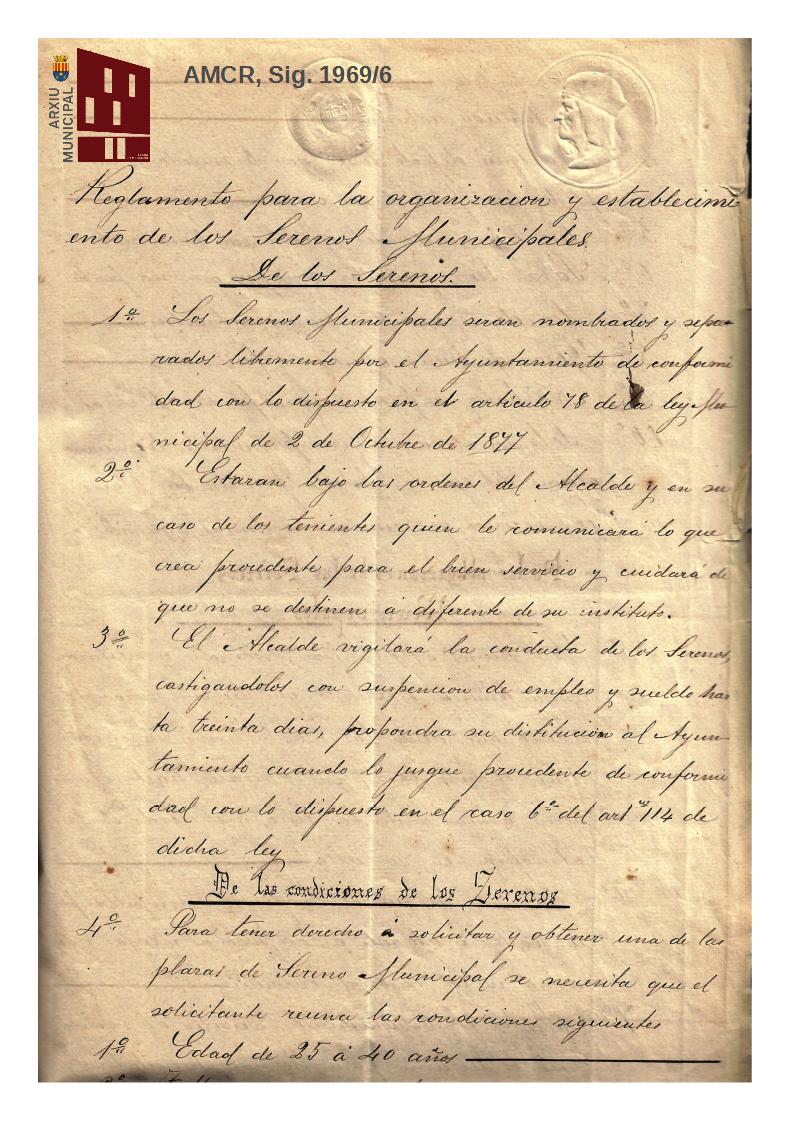 ARXIU
MUNICIPAL
AMCR, Sig. 1969/6
Reglamento para la organizacion y establecimi
ento de los Serenos Municipales.
De los Serenos.
1º Los Serenos Municipales seran nombrados y sepa-
rados libremente por el Ayuntamiento de conformi
dad con lo dispuesto en el articulo 78 de la ley Mu-
nicipal de 2 de Octubre de 1877
2º Estaran bajo las ordenes del Alcalde y en su
caso de los tenientes quien le comunicará lo que
crea procedente para el buen servicio y cuidará de
que no se destinen á diferente de su instituto.
3º El Alcalde vigilará la conducta de los Serenos,
castigandolos con suspencion de empleo y sueldo has
ta treinta dias, propondra su distitución al Ayun-
tamiento cuando lo jusgue procedente de conformi
dad con lo dispuesto en el caso 6º del artº 114 de
dicha ley
De las condiciones de los Serenos
4º Para tener derecho á solicitar y obtener una de las
plazas de Sereno Municipal se necesita que el
solicitante reuna las condiciones siguientes
1º Edad de 25 á 40 años